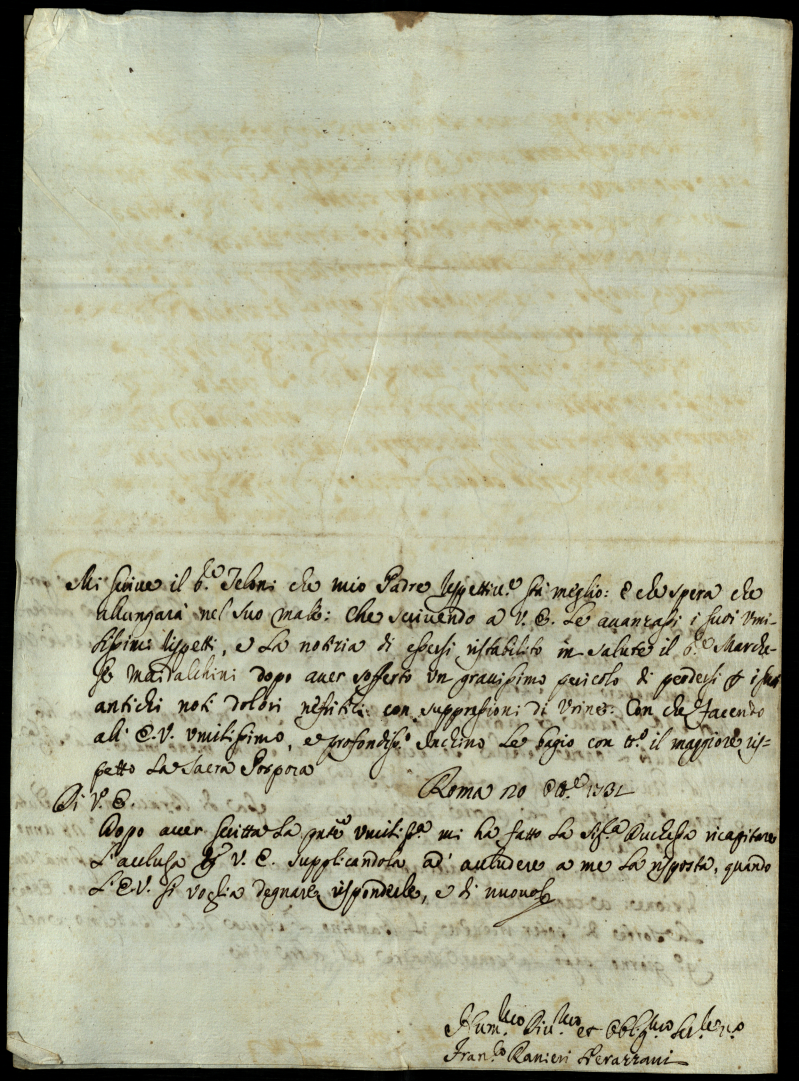 Mi scrive il S.r Jeloni che mio Padre rispettiv.e stà meglio: e che spera che
allungarà nel suo male: che scrivendo a V. E. le avanzassi i suoi umi-
lissimi rispetti, e la notizia di essersi ristabilito in salute il S.r Marche-
se Maidalchini dopo aver sofferto un gravissimo pericolo di perdersi p i suoi
antichi noti dolori nefritici con suppressioni di urine. Con che facendo
all' E. V. umilissimo, e profondiss.o inchino le bagio con tt.o il maggiore ris-
petto la Sacra Porpora
Di V. E. Roma 20 Ott.e 1731
Dopo aver scritta la pnte umiliss.a mi ha fatto la Sig.ra Duchessa ricapitare
l'acclusa p V. E. supplicandola ad' accludere a me la risposta, quando
l'E. V. si voglia degnare risponderle, e di nuovo
Hum.mo Div.mo et Obblig.mo Ser.re
Fran.co Ranieri Verazzani